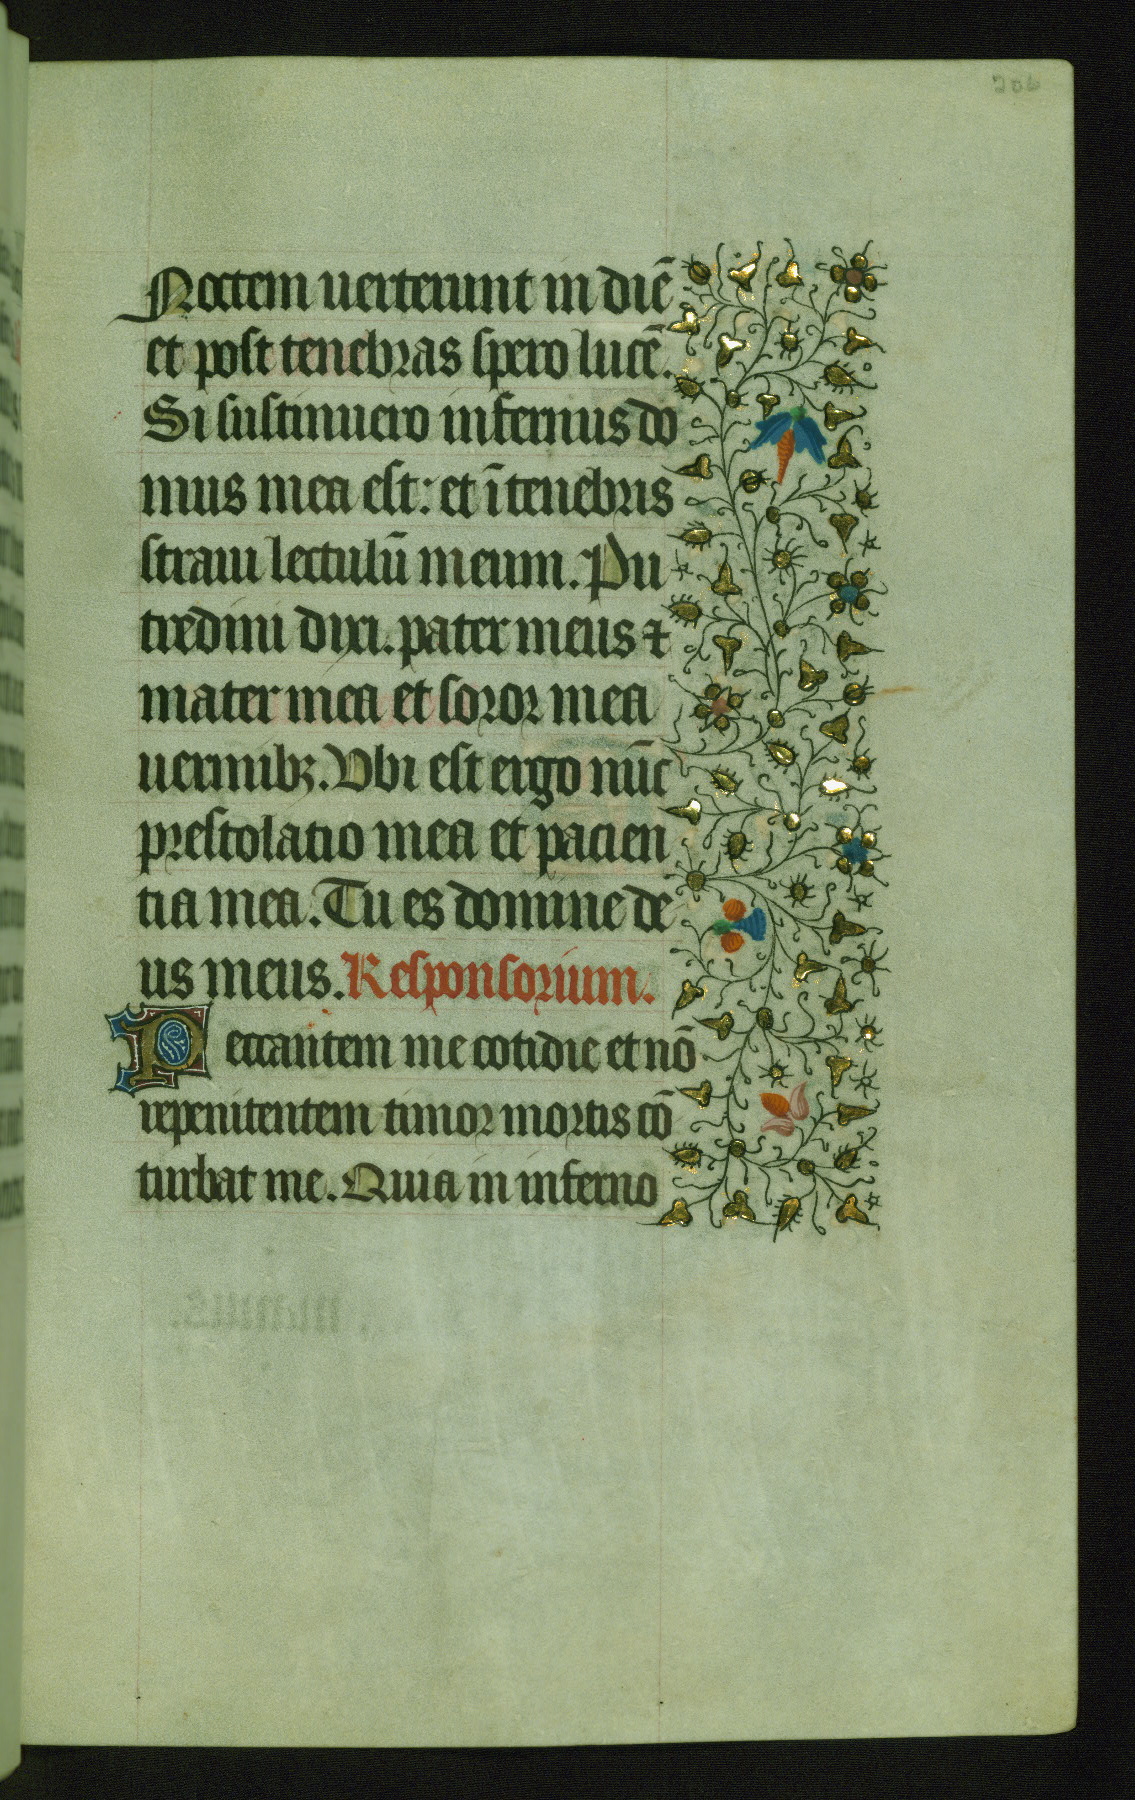 206
Noctem uerterunt in diē
et post tenebras spero lucē.
Si sustinuero infernus do
mus mea est: et ī tenebris
straui lectulū meum. Pu
tredini dixi. pater meus ⁊
mater mea et soror mea
uermibꝫ. Vbi est ergo nūc
prestolatio mea et pacien
tia mea. Tu es domine de
us meus. Responsorium.
Peccantem me cotidie et nō
repenitentem timor mortis cō
turbat me. Quia in inferno